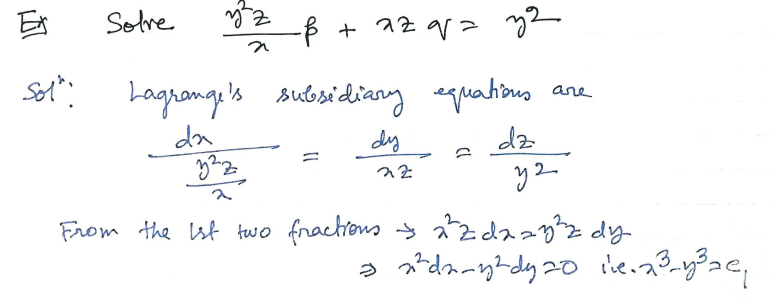 Ex Solve y²z/x p + xz q = y²
Solⁿ: Lagrange's subsidiary equations are
dx/(y²z/x) = dy/xz = dz/y²
From the Ist two fractions → x²z dx = y²z dy
⇒ x²dx - y²dy = 0 i.e. x³ - y³ = c₁